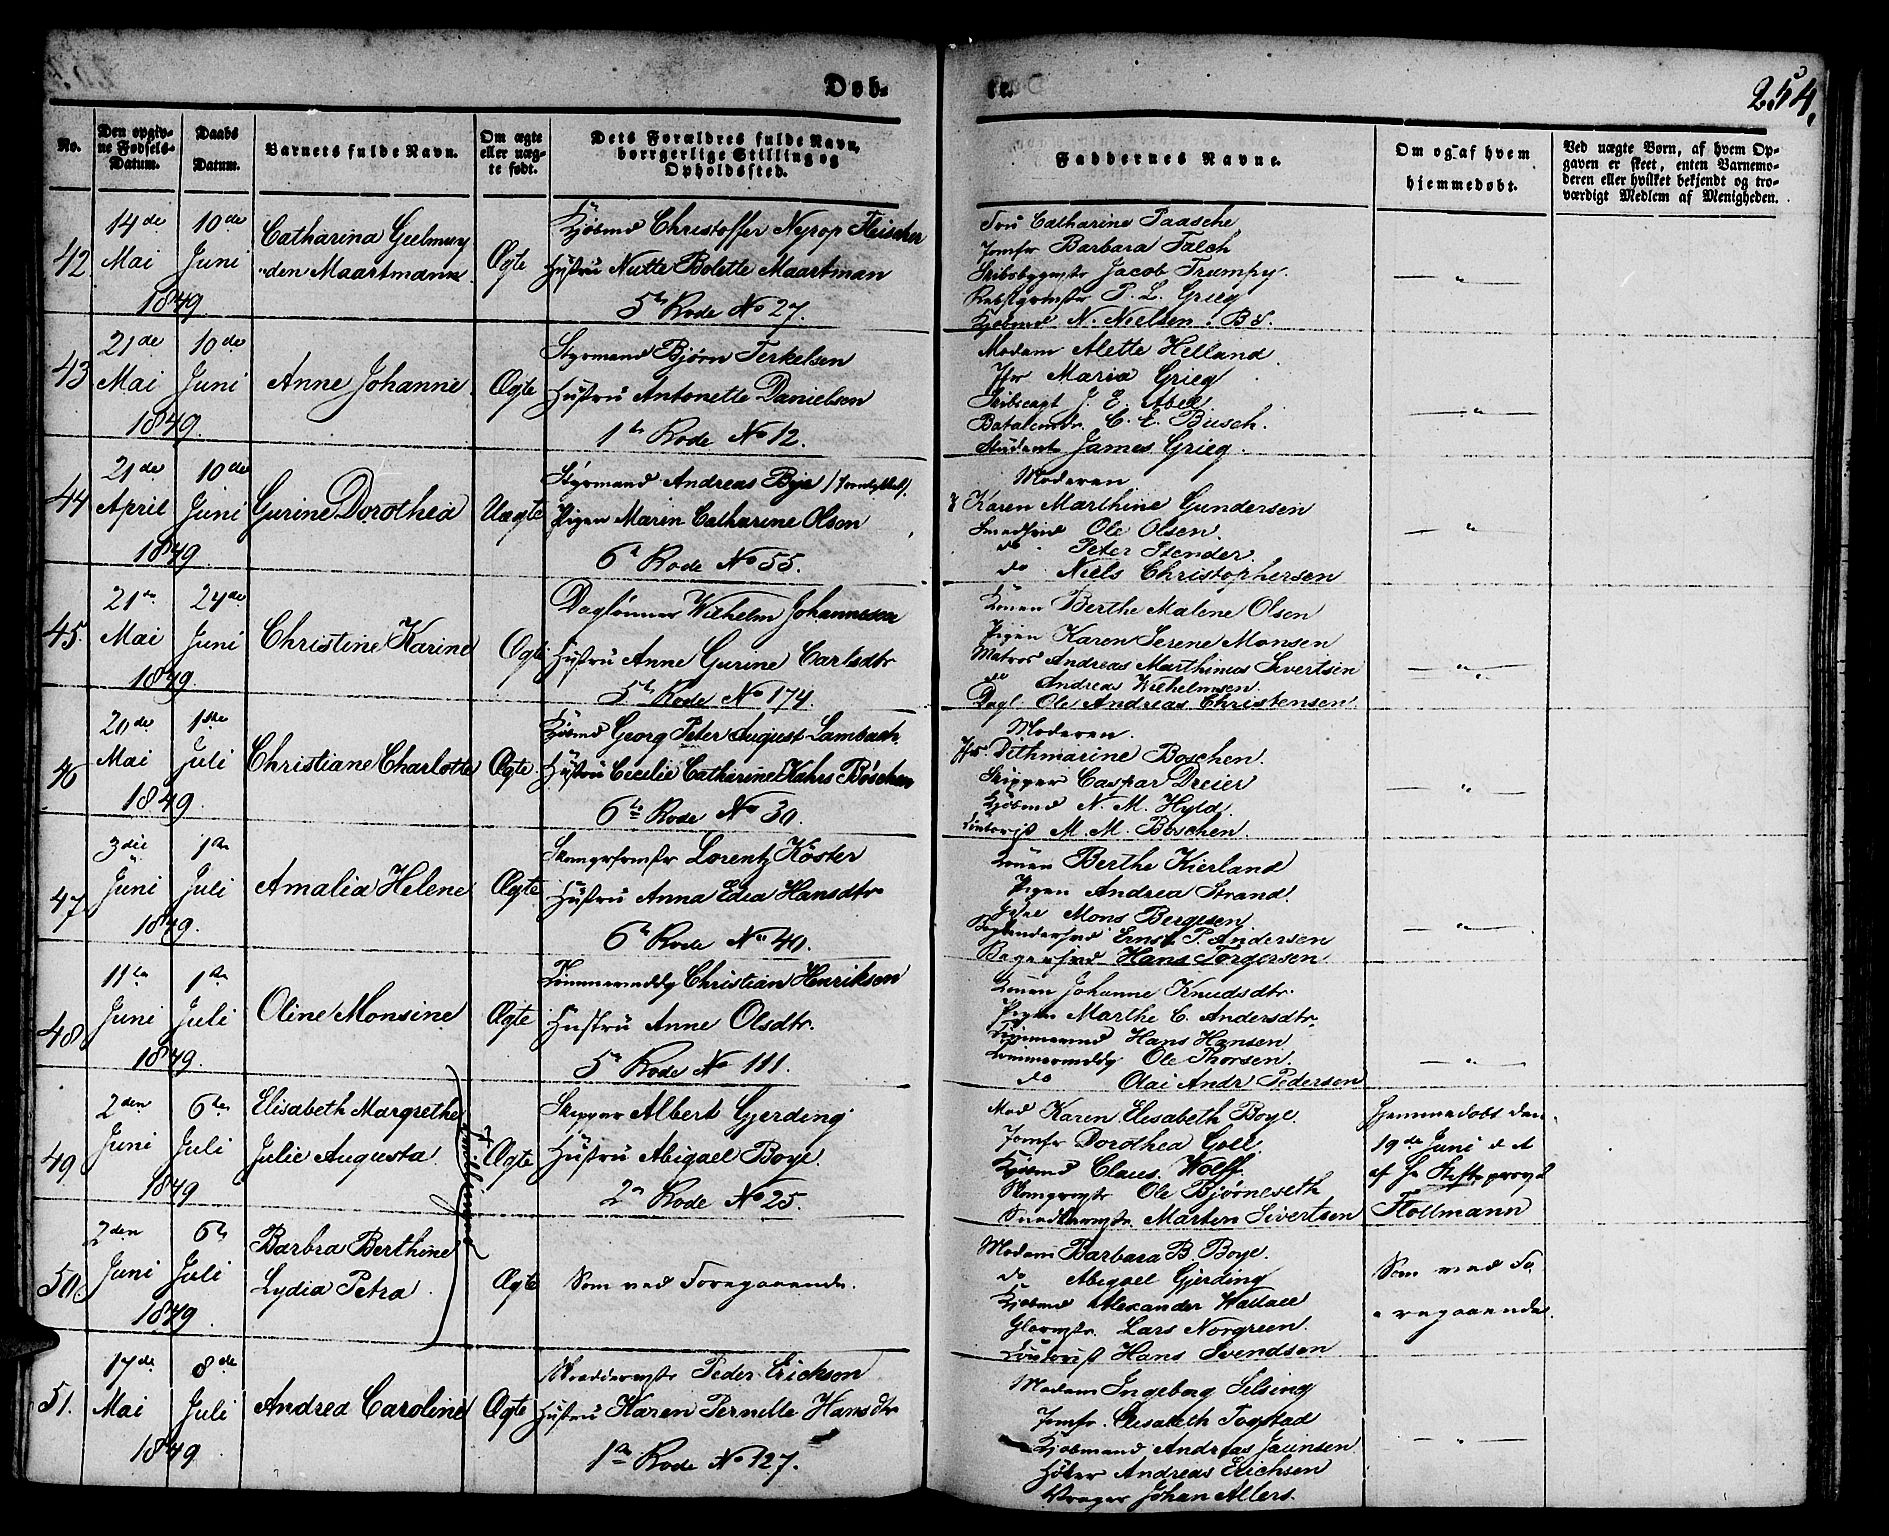 Døb-
te.
254.
No.
Den opgiv-
ne Fødsels-
Datum.
Daabs
Datum.
Barnets fulde Navn.
Om ægte
eller uæg-
te født.
Dets Forældres fulde Navn,
borgerlige Stilling og
Opholdssted.
Faddernes Navne.
Om og af hvem
hjemmedøbt.
Ved uægte Børn, af hvem Op-
gaven er skeet, enten Barnemo-
deren eller hvilket bekjendt og tro-
værdigt Medlem af Menigheden.
42
14de
Mai
1849.
10de
Juni
Catharina Gelmuy-
den Maartmann
Ægte
Kjøbmd Christoffer Nyrop Fleischer
Hustru Nutte Bolette Maartman
5te Rode No 27.
Fru Catharine Paasche
Jomfr Barbara Falch
Skibsbygmstr Jacob Trumpy.
P. L. Grieg
Kjøbmd N. Nielsen. B S.
— " —
43
21de
Mai
1849.
10de
Juni
Anne Johanne
Ægte
Styrmand Bjørn Terkelsen
Hustru Antonette Danielsen
1te Rode No 12.
Madam Alette Helland
Jfr Maria Grieg
J. E. Abel
C. E. Busch.
Student James Grieg.
— " —
44
21de
April
1849.
10de
Juni
Gurine Dorothea
Uægte
Styrmand Andreas Bye
Pigen Marin Catharine Olson
6te Rode No 55.
Moderen
Karen Marthine Gundersen
Smedsvd Ole Olsen.
do Peter Stender.
do Niels Christophersen
— " —
45.
21de
Mai
1849.
24de
Juni
Christine Karine
Ægte
Dagtønner Wilhelm Johannesen
Hustru Anne Gurine Carlsdtr
5te Rode No 174.
Konen Berthe Malene Olsen
Pigen Karen Serene Monsen
Matros Andreas Marthinus Sivertsen
do Andreas Wilhelmsen.
Dagl. Ole Andreas Christensen
— " —
46
20de
Mai
1849.
1ste
Juli
Christiane Charlotte
Ægte
Kjøbmd Georg Peter August Lambach.
Hustru Cecilie Catharine Kahrs Bøschen
6te Rode No 30.
Moderen.
Jfr. Dethmarine Boschen.
Skipper Caspar Dreier
Kjøbmd N. M. Hyld.
Contorist M. M. Boschen.
— " —
47
3die
Juni
1849.
1ste
Juli
Amalia Helene
Ægte
Lorentz Köster
Hustru Anna Edea Hansdtr
6te Rode No 40.
Konen Berthe Kierland
Pigen Andrea Strand.
Mons Bergesen
Ernst P. Andersen
Bagersvd Hans Torgersen
— " —
48
11te
Juni
1849.
1ste
Juli
Oline Monsine
Ægte
Tømmermddg Christian Henriksen
Hustru Anne Olsdtr.
5te Rode No 111.
Konen Johanne Knudsdtr.
Pigen Marthe C. Andersdtr.
Tømmermd Hans Hansen
Tømmermddg Ole Thorsen
do Olai Andr Pedersen
— " —
49
2den
Juni
1849
6te
Juli
Elisabeth Margrethe
Julie Augusta.
Tvillinger
Ægte
Skipper Albert Gjerding
Hustru Abigael Boye.
2den Rode No 25.
Mad Karen Elisabeth Boye.
Jomfr Dorothea Goll.
Kjøbmd Claus Wolff.
Ole Bjørneseth
Marten Sivertsen
Hjemmedøbt den
19de Juni d A
af Hr Stiftsprovst
Hollmann
50.
2den
Juni
1849.
6te
Juli
Barbra Berthine
Lydia Petra.
Ægte
Som ved Foregaaende.
Madam Barbara B. Boye.
do Abigael Gjerding
Kjøbmd Alexander Wallace
Glarmstr. Lars Norgreen.
Contorist Hans Svendsen
Som ved Fo-
regaaende.
51.
17de
Mai
1849.
8de
Juli
Andrea Caroline
Ægte
Skræddermstr Peder Erickson
Hustru Karen Pernelle Hansdtr
1ste Rode No 127.
Madam Ingeborg Selsing
Jomfr. Elisabeth Togstad
Kjøbmand Andreas Jaunsen
Høker Andreas Erichsen
Vrager Johan Allers.
— " —